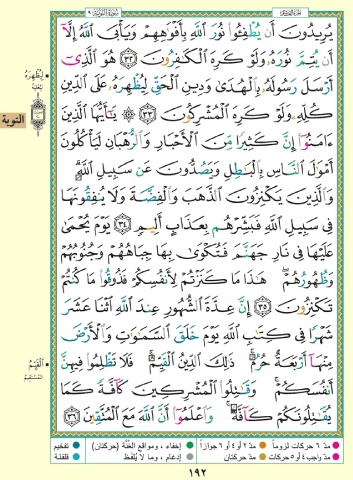 سورة التوبة ٩
يُرِيدُونَ أَن يُطْفِـُٔوا۟ نُورَ ٱللَّهِ بِأَفْوَٰهِهِمْ وَيَأْبَى ٱللَّهُ إِلَّآ
أَن يُتِمَّ نُورَهُۥ وَلَوْ كَرِهَ ٱلْكَـٰفِرُونَ ٣٢ هُوَ ٱلَّذِىٓ
أَرْسَلَ رَسُولَهُۥ بِٱلْهُدَىٰ وَدِينِ ٱلْحَقِّ لِيُظْهِرَهُۥ عَلَى ٱلدِّينِ
كُلِّهِۦ وَلَوْ كَرِهَ ٱلْمُشْرِكُونَ ٣٣ ۞ يَـٰٓأَيُّهَا ٱلَّذِينَ
ءَامَنُوٓا۟ إِنَّ كَثِيرًا مِّنَ ٱلْأَحْبَارِ وَٱلرُّهْبَانِ لَيَأْكُلُونَ
أَمْوَٰلَ ٱلنَّاسِ بِٱلْبَـٰطِلِ وَيَصُدُّونَ عَن سَبِيلِ ٱللَّهِ ۗ
وَٱلَّذِينَ يَكْنِزُونَ ٱلذَّهَبَ وَٱلْفِضَّةَ وَلَا يُنفِقُونَهَا
فِى سَبِيلِ ٱللَّهِ فَبَشِّرْهُم بِعَذَابٍ أَلِيمٍ ٣٤ يَوْمَ يُحْمَىٰ
عَلَيْهَا فِى نَارِ جَهَنَّمَ فَتُكْوَىٰ بِهَا جِبَاهُهُمْ وَجُنُوبُهُمْ
وَظُهُورُهُمْ ۖ هَـٰذَا مَا كَنَزْتُمْ لِأَنفُسِكُمْ فَذُوقُوا۟ مَا كُنتُمْ
تَكْنِزُونَ ٣٥ إِنَّ عِدَّةَ ٱلشُّهُورِ عِندَ ٱللَّهِ ٱثْنَا عَشَرَ
شَهْرًا فِى كِتَـٰبِ ٱللَّهِ يَوْمَ خَلَقَ ٱلسَّمَـٰوَٰتِ وَٱلْأَرْضَ
مِنْهَآ أَرْبَعَةٌ حُرُمٌ ۚ ذَٰلِكَ ٱلدِّينُ ٱلْقَيِّمُ ۚ فَلَا تَظْلِمُوا۟ فِيهِنَّ
أَنفُسَكُمْ ۚ وَقَـٰتِلُوا۟ ٱلْمُشْرِكِينَ كَآفَّةً كَمَا
يُقَـٰتِلُونَكُمْ كَآفَّةً ۚ وَٱعْلَمُوٓا۟ أَنَّ ٱللَّهَ مَعَ ٱلْمُتَّقِينَ ٣٦
لِيُظْهِرَهُ
التوبة
الْقَيِّمُ
المستقيم
مدّ ٦ حركات لزوماً مدّ ٢ أو ٤ أو ٦ جوازاً إخفاء، ومواقع الغنّة (حركتان) تفخيم
مدّ واجب ٤ أو ٥ حركات مدّ حركتان إدغام، وما لا يُلفظ قلقلة
١٩٢